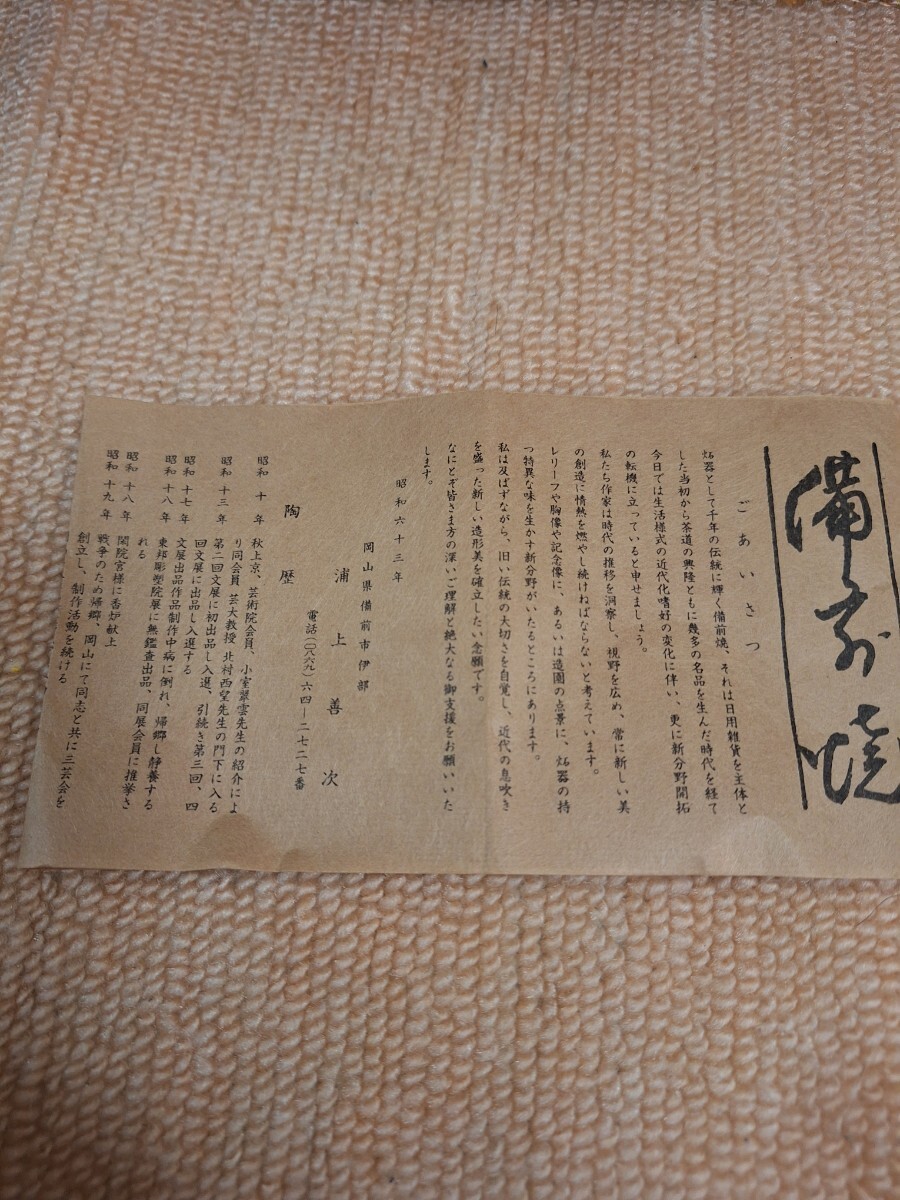 備前焼
ごあいさつ
炻器として千年の伝統に輝く備前焼、それは日用雑貨を主体と
した当初から茶道の興隆とともに幾多の名品を生んだ時代を経て
今日では生活様式の近代化嗜好の変化に伴い、更に新分野開拓
の転機に立っていると申せましょう。
私たち作家は時代の推移を洞察し、視野を広め、常に新しい美
の創造に情熱を燃やし続けねばならないと考えています。
レリーフや胸像や記念像に、あるいは造園の点景に、炻器の持
つ特異な味を生かす新分野がいたるところにあります。
私は及ばずながら、旧い伝統の大切さを自覚し、近代の息吹き
を盛った新しい造形美を確立したい念願です。
なにとぞ皆さま方の深いご理解と絶大なる御支援をお願いいた
します。
昭和六十三年
岡山県備前市伊部
浦上善次
電話(〇八六九)六四―二七二七番
陶歴
昭和 十 年 秋上京、芸術院会員、小室翠雲先生の紹介によ
り同会員、芸大教授 北村西望先生の門下に入る
昭和 十三 年 第二回文展に初出品し入選、引続き第三回、四
回文展に出品し入選する
昭和 十七 年 文展出品作品制作中病に倒れ、帰郷し静養する
昭和 十八 年 東邦彫塑院展に無鑑査出品、同展会員に推挙さ
れる
昭和 十八 年 閑院宮様に香炉献上
昭和 十九 年 戦争のため帰郷、岡山にて同志と共に三芸会を
創立し、制作活動を続ける